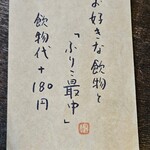 お好きな飲物と
「ぶりこ最中」
飲物代+180円